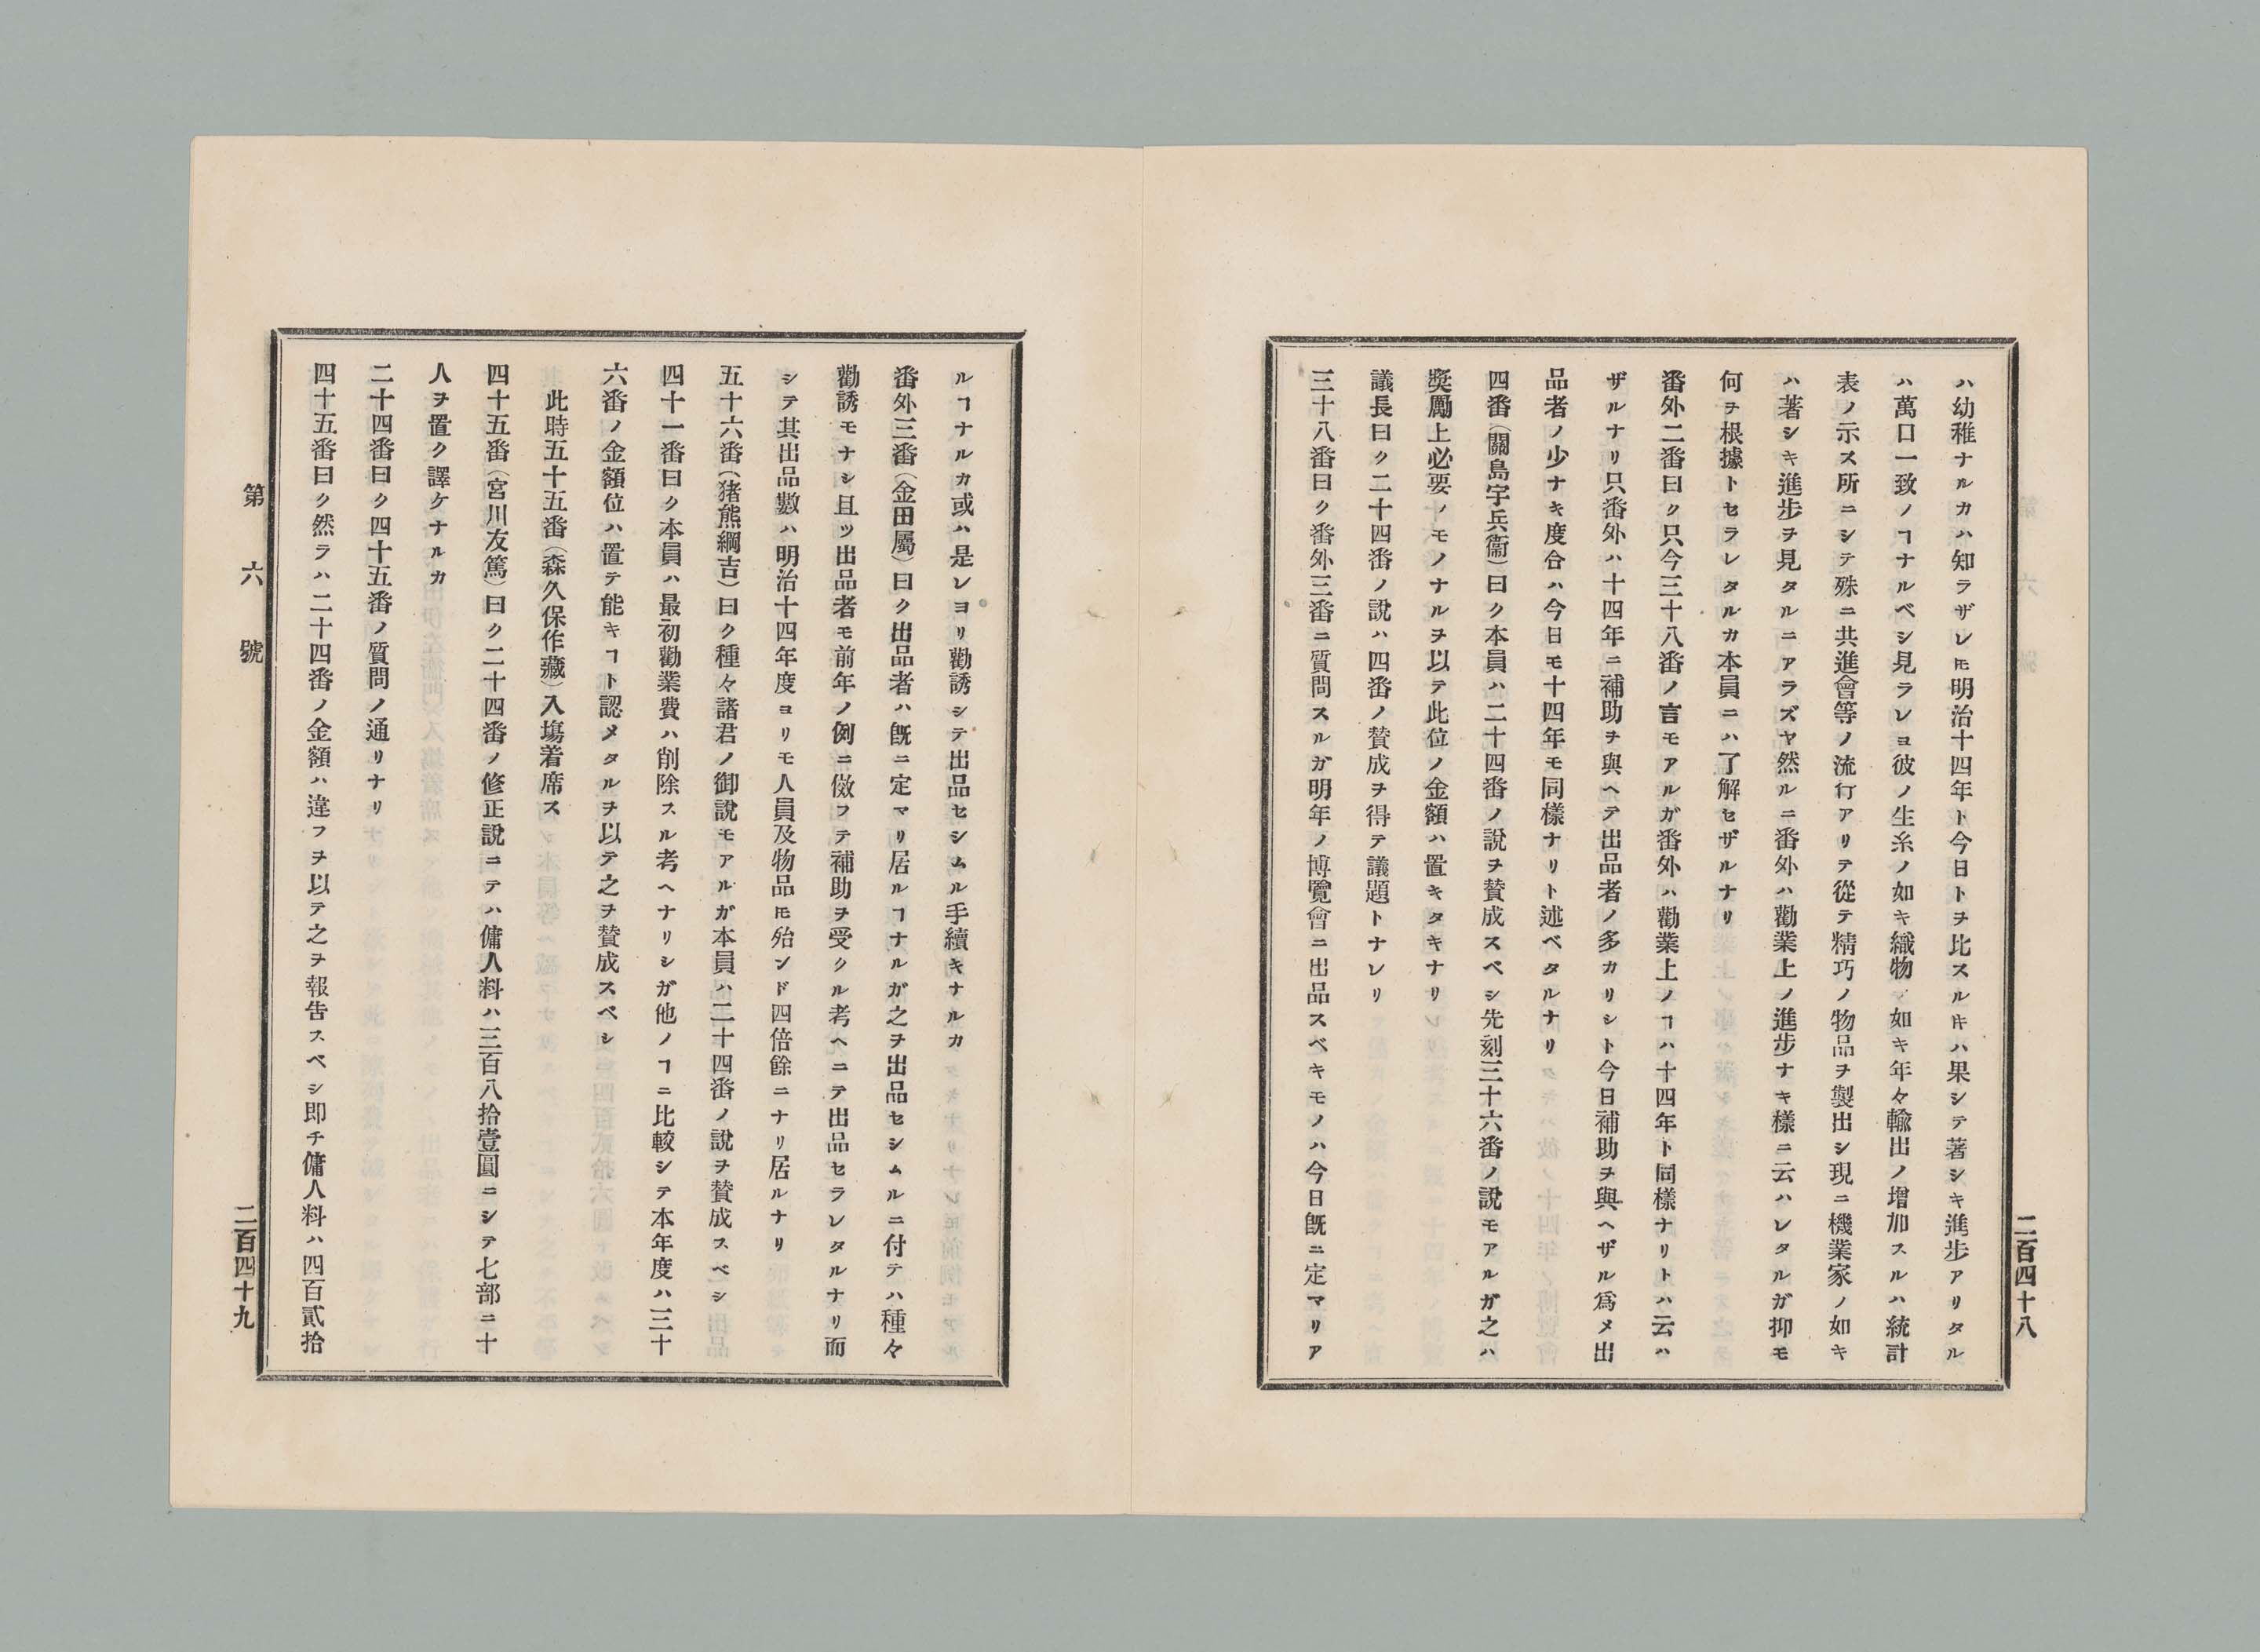 二百四十八
ハ幼稚ナルカハ知ラザレ𪜈明治十四年ト今日トヲ比スルキハ果シテ著シキ進步アリタル
ハ萬口一致ノヿナルベシ見ラレヨ彼ノ生糸ノ如キ織物ノ如キ年々輸出ノ增加スルハ統計
表ノ示ス所ニシテ殊ニ共進會等ノ流行アリテ從テ精巧ノ物品ヲ製出シ現ニ機業家ノ如キ
ハ著シキ進步ヲ見タルニアラズヤ然ルニ番外ハ勸業上ノ進步ナキ樣ニ云ハレタルガ抑モ
何ヲ根據トセラレタルカ本員ニハ了解セザルナリ
番外二番曰ク只今三十八番ノ言モアルガ番外ハ勸業上ノヿハ十四年ト同樣ナリトハ云ハ
ザルナリ只番外ハ十四年ニ補助ヲ與ヘテ出品者ノ多カリシト今日補助ヲ與ヘザル爲メ出
品者ノ少ナキ度合ハ今日モ十四年モ同樣ナリト述ベタルナリ
四番(關島宇兵衞)曰ク本員ハ二十四番ノ說ヲ賛成スベシ先刻三十六番ノ說モアルガ之ハ
奬勵上必要ノモノナルヲ以テ此位ノ金額ハ置キタキナリ
議長曰ク二十四番ノ說ハ四番ノ賛成ヲ得テ議題トナレリ
三十八番曰ク番外三番ニ質問スルガ明年ノ博覽會ニ出品スベキモノハ今日既ニ定マリア
ルヿナルカ或ハ是レヨリ勸誘シテ出品セシムル手續キナルカ
番外三番(金田屬)曰ク出品者ハ既ニ定マリ居ルヿナルガ之ヲ出品セシムルニ付テハ種々
勸誘モナシ且ツ出品者モ前年ノ例ニ倣フテ補助ヲ受クル考ヘニテ出品セラレタルナリ而
シテ其出品數ハ明治十四年度ヨリモ人員及物品𪜈殆ンド四倍餘ニナリ居ルナリ
五十六番(猪熊綱吉)曰ク種々諸君ノ御說モアルガ本員ハ二十四番ノ說ヲ賛成スベシ
四十一番曰ク本員ハ最初勸業費ハ削除スル考ヘナリシガ他ノヿニ比較シテ本年度ハ三十
六番ノ金額位ハ置テ能キヿト認メタルヲ以テ之ヲ賛成スベシ
此時五十五番(森久保作藏)入塲着席ス
四十五番(宮川友篤)曰ク二十四番ノ修正說ニテハ傭人料ハ三百八拾壹圓ニシテ七部ニ十
人ヲ置ク譯ケナルカ
二十四番曰ク四十五番ノ質問ノ通リナリ
四十五番曰ク然ラハ二十四番ノ金額ハ違フヲ以テ之ヲ報告スベシ即チ傭人料ハ四百貳拾
第六號
二百四十九